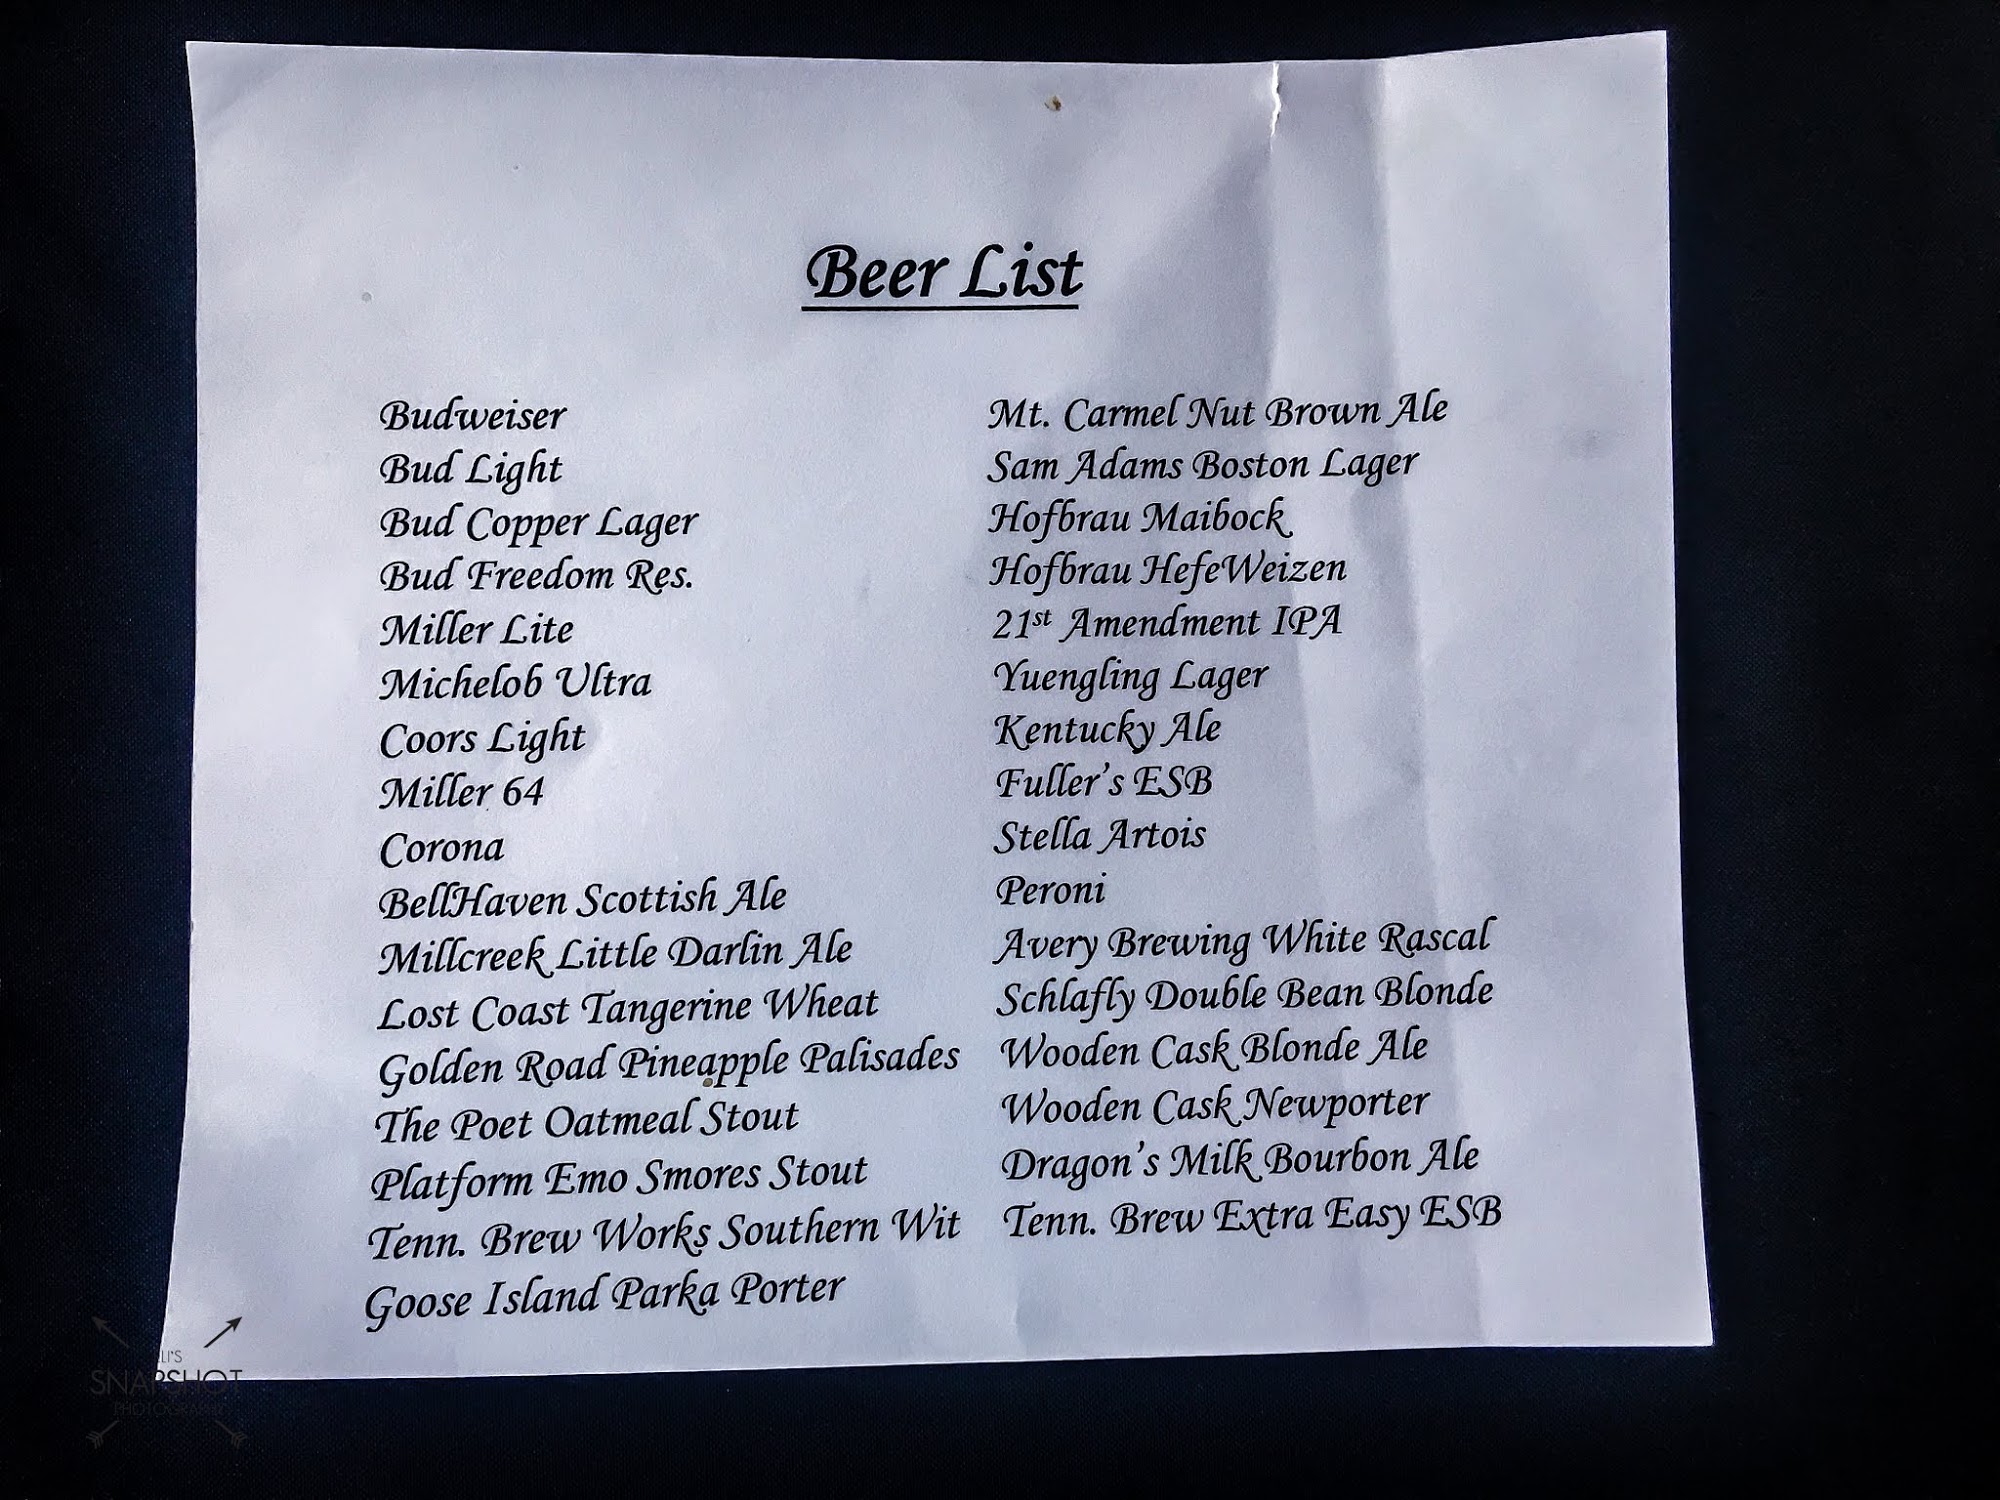 Beer List
Budweiser
Bud Light
Bud Copper Lager
Bud Freedom Res.
Miller Lite
Michelob Ultra
Coors Light
Miller 64
Corona
BellHaven Scottish Ale
Millcreek Little Darlin Ale
Lost Coast Tangerine Wheat
Golden Road Pineapple Palisades
The Poet Oatmeal Stout
Platform Emo Smores Stout
Tenn. Brew Works Southern Wit
Goose Island Parka Porter
Mt. Carmel Nut Brown Ale
Sam Adams Boston Lager
Hofbrau Maibock
Hofbrau HefeWeizen
21st Amendment IPA
Yuengling Lager
Kentucky Ale
Fuller's ESB
Stella Artois
Peroni
Avery Brewing White Rascal
Schlafly Double Bean Blonde
Wooden Cask Blonde Ale
Wooden Cask Newporter
Dragon's Milk Bourbon Ale
Tenn. Brew Extra Easy ESB
SNAPSHOT
PHOTOGRAPHY